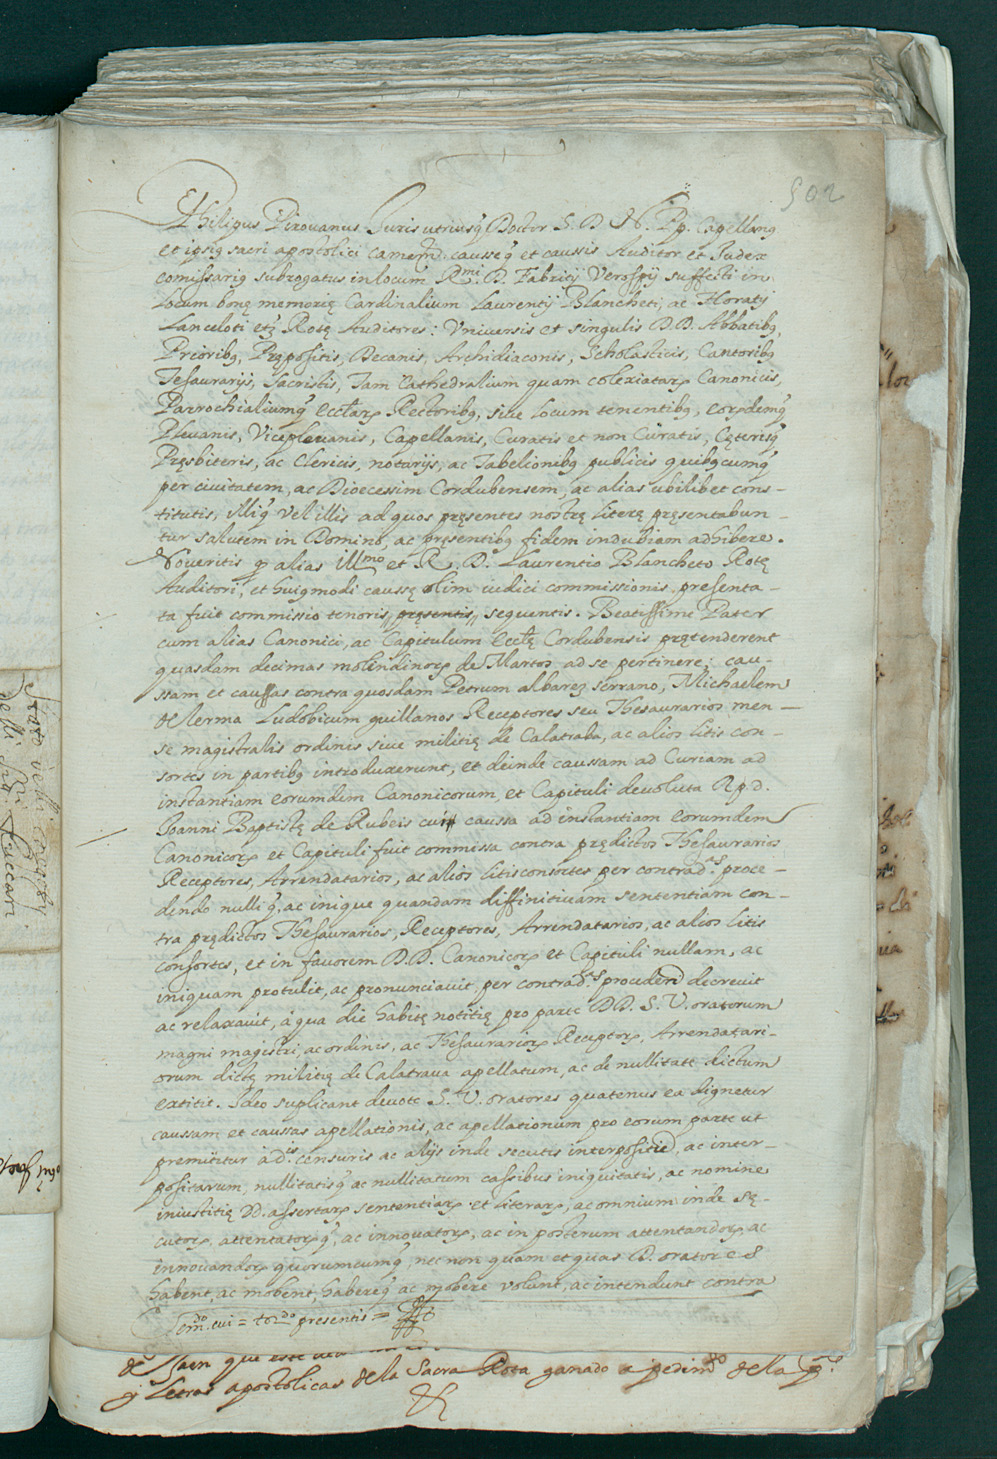 502
Philipus Pirovanus Juris utriusq Doctor S. D. N. Pp. Capellanq
et ipsiq sacri apostolici Camerę causseq et caussis Auditor et Judex
comissariq subrogatus in locum Rmi D. Fabricij Verospij suffecti in
locum bonę memorię Cardinalium Laurentij Blancheti, ac Horatij
Lanceloti etz Rotę Auditores: Vniversis et singulis D.D. Abbatibq,
Prioribq, Prępositis, Decanis, Archidiaconis, Scholasticis, Cantoribq
Tesaurarijs, Sacristis, Tam Cathedralium quam colexiatarz Canonicis,
Parrochialiumq Ecclarz Rectoribq, sive locum tenentibq, eorzdemq
Plevanis, Viceplevanis, Capellanis, Curatis et non Curatis, Cęterisq
Pręsbiteris, ac Clericis, notarijs, ac Tabelionibq publicis quibqcumq
per civitatem, ac Dioecessim Cordubensem, ac alias ubilibet cons-
titutis, illiq vel illis ad quos pręsentes nostrę literę pręsentabun-
tur salutem in Domino, ac pręsentibq fidem indubiam adhibere.
Noveritis q alias Illmo et R. D. Laurentio Blancheto Rotę
Auditori, et huiqmodi caussę olim iudici commissionis presenta-
ta fuit commissio tenoris pręsentis sequentis. Beatissime Pater
cum alias Canonici, ac Capitulum Ecclę Cordubensis prętenderent
quasdam decimas molendinorz de Martos ad se pertinere; cau-
ssam et caussas contra quosdam Petrum albarez serrano, Michaelem
de lerma Ludobicum quillanos Receptores seu Thesaurarios men-
sę magistralis ordinis sive militię de Calatraba, ac alios litis con-
sortes in partibq introduxerunt, et deinde caussam ad Curiam ad
instantiam eorumdem Canonicorum, et Capituli devoluta R.p.d.
Joanni Baptistę de Rubeis cui caussa ad instantiam eorumdem
Canonicorz et Capituli fuit commissa contra prędictos Thesaurarios
Receptores, Arrendatarios, ac alios litisconsortes per contradas proce-
dendo nulliq, ac inique quandam diffinitivam sententiam con-
tra prędictos Thesaurarios, Receptores, Arrendatarios, ac alios litis
consortes, et in favorem D.D. Canonicorz et Capituli nullam, ac
iniquam protulit, ac pronunciavit, per contradas procedend decrevit
ac relaxavit, á qua die habitę notitię pro parte DD. S. V. oratorum
magni magistri, ac ordinis, ac Thesaurariorz Receptorz, Arrendatari-
orum dictę militię de Calatrava apellatum, ac de nullitate dictum
extitit. Ideo suplicant devote S. V. oratores quatenus ea dignetur
caussam et caussas apellationis, ac apellationum pro eorum parte ut
premititur ádis censuris ac alijs inde secutis interpositis, ac inter-
positarum, nullitatisq ac nullitatum cassibus iniquitatis, ac nomine
iniustitię DD. assertarz sententiarz et literarz, ac omnium inde sę-
cutorz, attentatorzq, ac innovatorz, ac in posterum attentandorz, ac
innovandorz quorumcumq, nec non quam et quas D. oratores
habent, ac mobent, habereq ac mobere volunt, ac intendunt contra
Emdo. cui = tordo presentis =
de Jaen que
y Letras apostolicas de la Sacra Rota ganado a pedimto de la